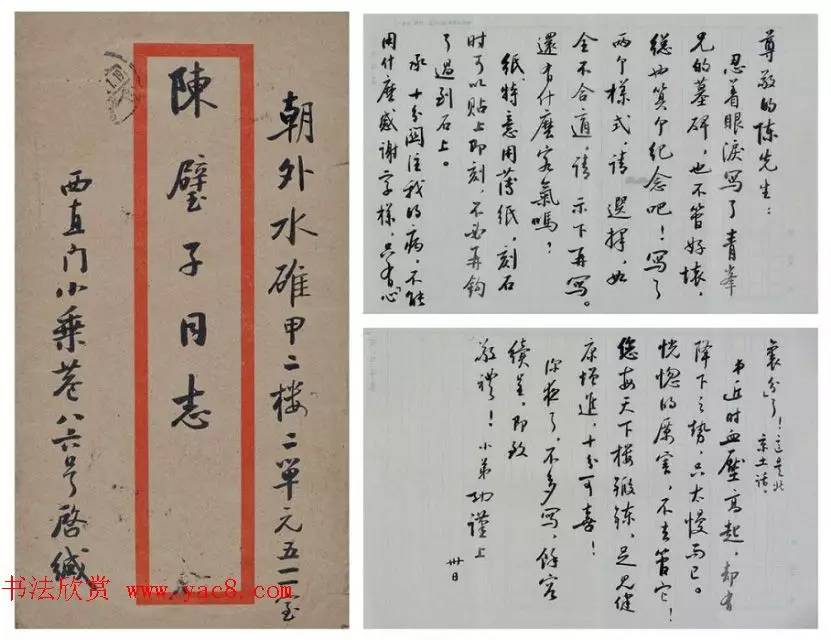 朝外水碓甲二楼二单元五一一室
陳璧子同志
西直门小乘巷八六号启缄
尊敬的陈先生：
忍着眼淚写了青峯
兄的墓碑，也不管好壞，
總也算个纪念吧！写了
两个樣式，请选擇，如
全不合適，请示下再写。
還有什麼客氣嗎？
纸特意用薄纸，刻石
时可以贴上即刻，不必再钩
了過到石上。
承十分関注我的病，不能
用什麼感谢字樣，只有心
裏分了！這是北
京土话。
弟近时血壓高起，却有
降下之势，只大慢而已。
恍惚的厲害，不去管它！
您每天下楼锻练，足見健
康增進，十分可喜！
深夜了，不多写，餘容
续呈，即致
敬禮！ 小弟功谨上
卅日
书法欣赏 www.yac8.com